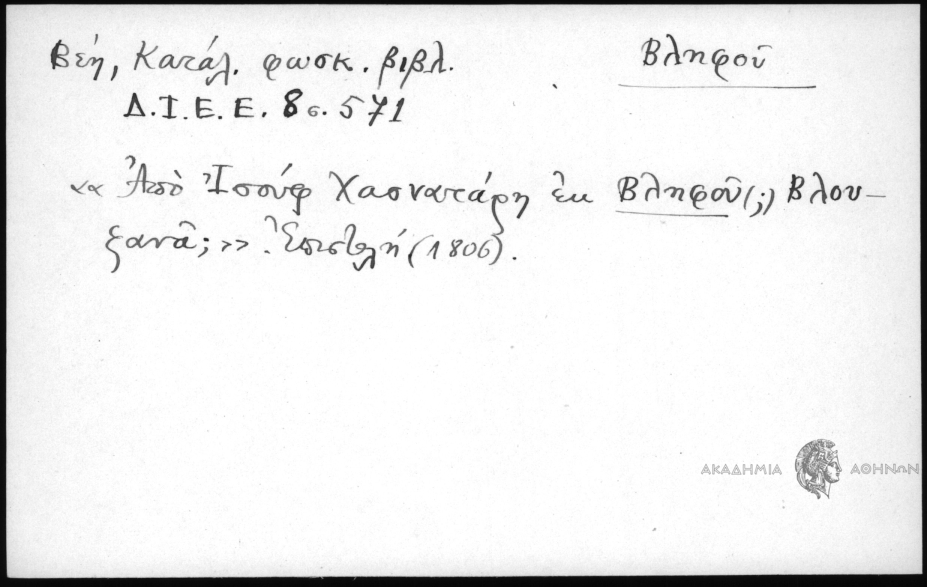 Βέη, Κατάλ. φωσκ. βιβλ.
Βληφοῦ
Δ.Ι.Ε.Ε. 8 σ. 571
«Ἀπὸ Ἰσούφ Χασνατάρη ἐκ Βληφοῦ(;) Βλου-
ξανᾶ;» Ἐπιστολή (1806).
ΑΚΑΔΗΜΙΑ ΑΘΗΝΩΝ